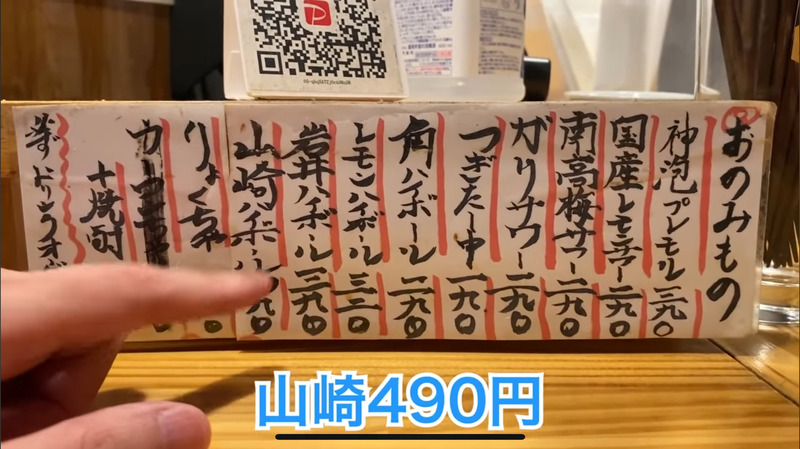 おのみもの
神泡プレモル 三九〇
国産レモンサワー 二九〇
南高梅サワー 二九〇
ガリサワー 二九〇
つぎたし中 一九〇
角ハイボール 二九〇
レモンハイボール 三二〇
岩井ハイボール 三九〇
山崎ハイボール 九〇
りょくちゃ 〇
十焼酎
山崎490円